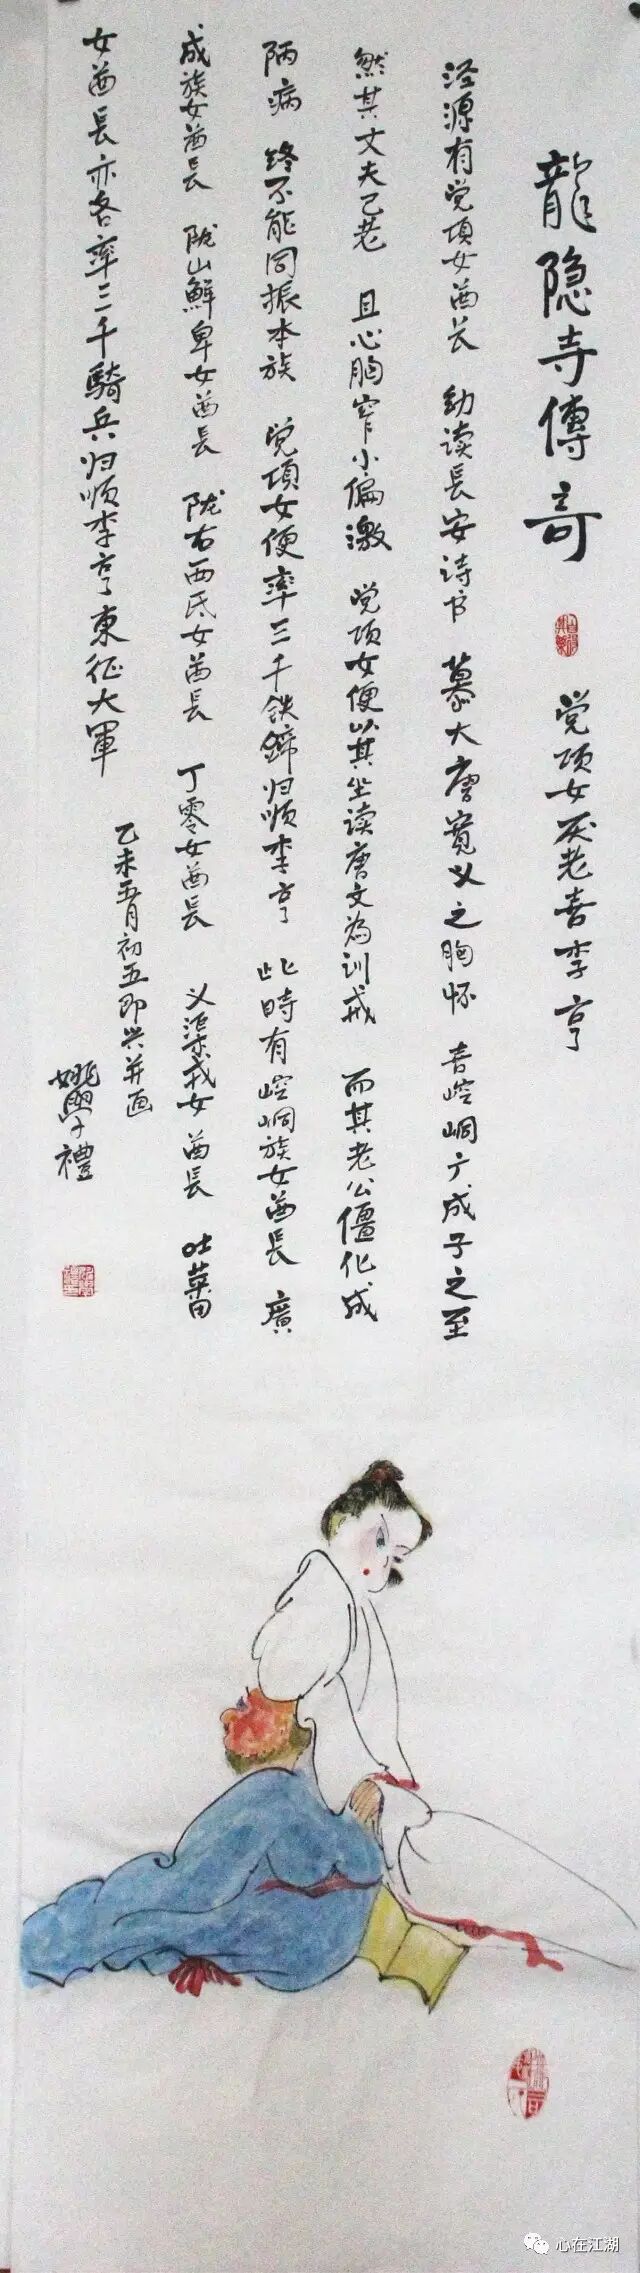 龍隐寺傳奇 党项女厌老喜李亨
泾源有党项女酋长 幼读長安诗书 慕大唐宽义之胸怀 喜崆峒广成子之至
然其丈夫已老 且心胸窄小偏激 党项女便以其坐读唐文為训戒 而其老公僵化成
陋病 终不能同振本族 党項女便率三千铁蹄归顺李亨 此時有崆峒族女酋長 廣
成族女酋長 陇山鮮卑女酋長 陇右西氏女酋長 丁零女酋長 义渠戎女酋長 吐蕃
女酋長亦各率三千騎兵归顺李亨東征大軍
乙未五月初五即兴并画
姚學禮
心在江湖